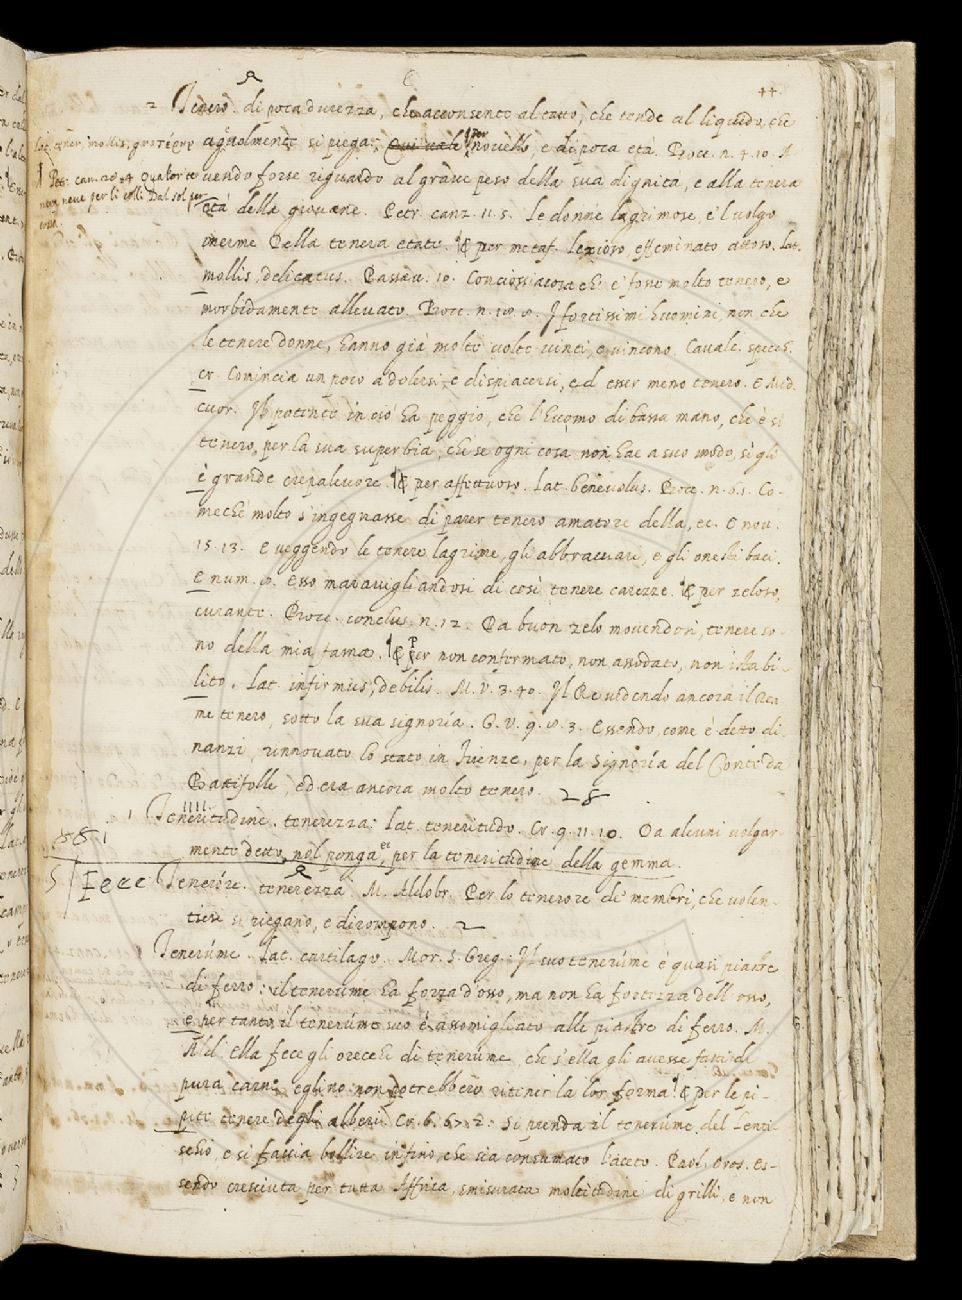 44
2 Tenero. di poca durezza, che acconsente al tatto, che tende al liquido, che
Lat. tener, mollis, gr. τέρην
agevolmente si piega; novello, e di poca età. Bocc. n. 4. 10. A
Petr. canz.
neve per li colli Dal sol
vendo forse riguardo al grave peso della sua dignità, e alla tenera
età della giovane. Petr. canz. 11. 5. Le donne lagrimose, e 'l volgo
inerme Della tenera etate. ¶ E per metaf. lezioso, effeminato, Lat.
mollis, delicatus. Passav. 10. Conciossiacosa che e' fosse molto tenero, e
morbidamente allevato. Bocc. n. 18. 8. I fortissimi huomini non che
le tenere donne, hanno già molte volte vinti, e vincono. Cavalc. specch.
cr. Comincia un poco a dolersi, e dispiacersi, ed esser meno tenero. E Med.
cuor. Il potente in ciò ha peggio, che l'huomo di bassa mano, che è sì
tenero, per la sua superbia, che se ogni cosa non hae a suo modo, sì gli
è grande crepalcuore. ¶ E per affettuoso. Lat. benevolus. Bocc. n. 65. Co-
meché molto s'ingegnasse di parer tenero amatore della, ec. E nov.
15. 13. E veggendo le tenere lagrime, gli abbracciari, e gli onesti baci.
E num. 8. Esso maravigliandosi di così tenere carezze. ¶ E per zeloso,
curante. Bocc. conclus. n. 12. Da buon zelo movendosi, tenere so-
no della mia fama. ¶ E per non confermato, non assodato, non istabi-
lito. Lat. infirmus, debilis. M. V. 3. 40. Il Re vedendo ancora il Rea-
me tenero, sotto la sua signoría. G. V. 9. 8. 3. Essendo, come è detto di-
nanzi, rinnovato lo stato in Firenze, per la Signoría del Conte da
Battifolle, ed era ancora molto tenero. 28
1 Teneritudine. tenerezza. Lat. teneritudo. Cr. 9. 11. 10. Da alcuni volgar-
881
mente detto, nol ponga, per la teneritudine della gemma.
5 Feee
Tenerore. tenerezza. M. Aldobr. Per lo tenerore de' membri, che volen-
tieri si piegano, e dirompono. 2
Tenerúme. Lat. cartilago. Mor. S. Greg. Il suo tenerúme è quasi piastre
di ferro: il tenerúme ha forza d'osso, ma non ha fortezza dell'osso,
e per tanto il tenerúme suo è assomigliato alle piastre di ferro. M.
Ald. ella fece gli orecchi di tenerúme, che s'ella gli avesse fatti di
pura carne, eglino non potrebbero ritener la lor forma. ¶ E per le pi-
pite tenere degli alberi. Cr. 6. 67. 2. Si prenda il tenerúme del Lenti-
schio, e si faccia bollire infino, che sia consumato l'aceto. Paol. Oros. Es-
sendo cresciuta per tutta Affrica, smisurata moltitudine di grilli, e non